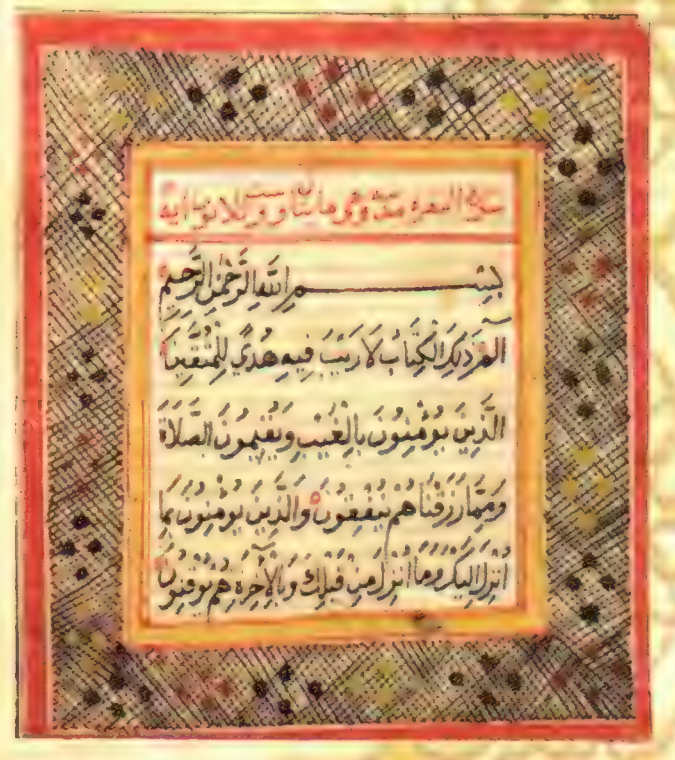 سورة البقرة مدنية وهي مايتان وست وثلاثون اية
بِسْمِ اللَّهِ الرَّحْمَٰنِ الرَّحِيمِ
الٓمّ ذَلِكَ الْكِتَابُ لَا رَيْبَ فِيهِ هُدًى لِلْمُتَّقِينَ
الَّذِينَ يُؤْمِنُونَ بِالْغَيْبِ وَيُقِيمُونَ الصَّلَاةَ
وَمِمَّا رَزَقْنَاهُمْ يُنْفِقُونَ وَالَّذِينَ يُؤْمِنُونَ بِمَا
أُنْزِلَ إِلَيْكَ وَمَا أُنْزِلَ مِنْ قَبْلِكَ وَبِالْآخِرَةِ هُمْ يُوقِنُونَ